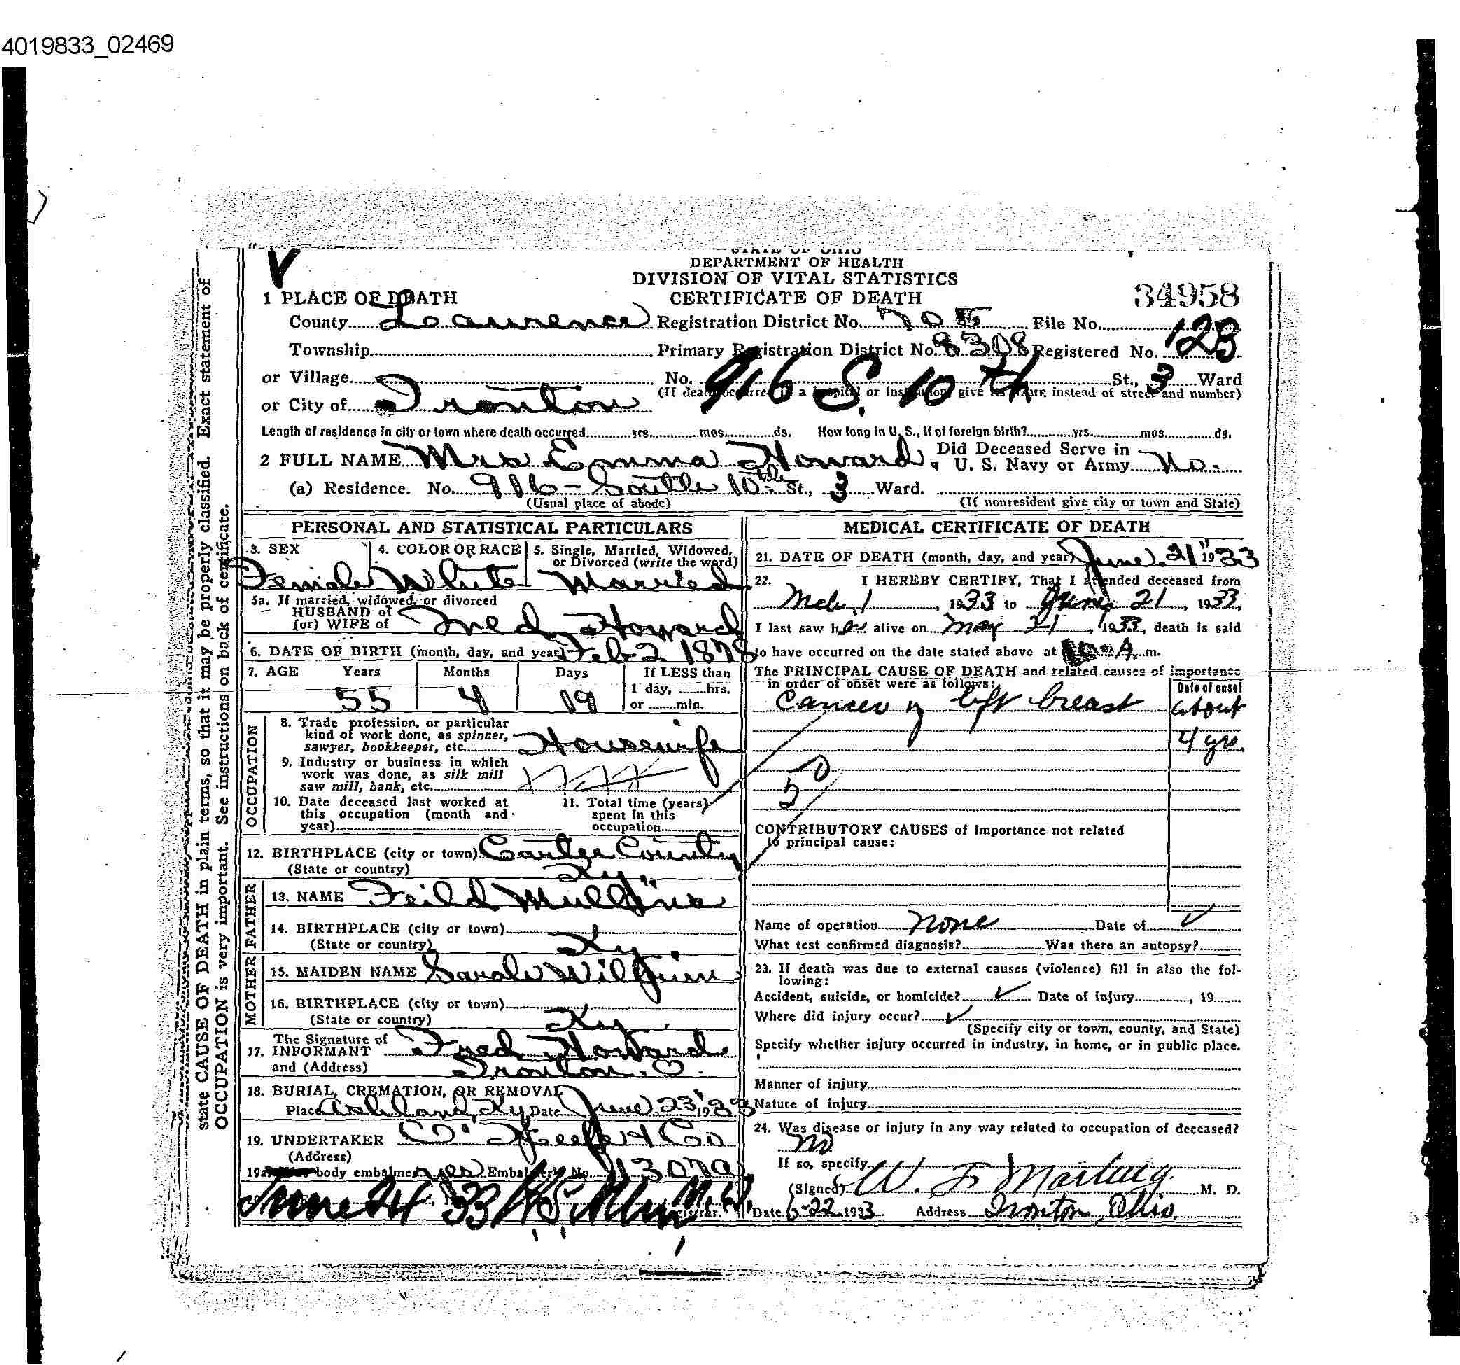 4019833_02469
STATE OF OHIO
DEPARTMENT OF HEALTH
DIVISION OF VITAL STATISTICS
CERTIFICATE OF DEATH
34958
1 PLACE OF DEATH
County Lawrence Registration District No. 705 File No.
Township Primary Registration District No. 8308 Registered No. 123
or Village No. 916 S. 10th St., 3 Ward
(If death occurred in a hospital or institution, give its name instead of street and number)
or City of Ironton
Length of residence in city or town where death occurred yrs. mos. ds. How long in U. S., if of foreign birth? yrs. mos. ds.
2 FULL NAME Mrs Emma Howard, Did Deceased Serve in U. S. Navy or Army No.
(a) Residence. No. 916 - South 10th St., 3 Ward.
(Usual place of abode) (If nonresident give city or town and State)
PERSONAL AND STATISTICAL PARTICULARS
3. SEX 4. COLOR OR RACE 5. Single, Married, Widowed, or Divorced (write the word)
Female White Married
5a. If married, widowed, or divorced
HUSBAND of
(or) WIFE of Howard
6. DATE OF BIRTH (month, day, and year) Feb 2 1878
7. AGE Years Months Days If LESS than
1 day, hrs.
or min.
55 4 19
OCCUPATION
8. Trade profession, or particular
kind of work done, as spinner,
sawyer, bookkeeper, etc. Housewife
9. Industry or business in which
work was done, as silk mill
saw mill, bank, etc.
10. Date deceased last worked at
this occupation (month and
year)
11. Total time (years)
spent in this
occupation
12. BIRTHPLACE (city or town) Carter County
(State or country) Ky.
FATHER
13. NAME Feild Mullins
14. BIRTHPLACE (city or town)
(State or country) Ky
MOTHER
15. MAIDEN NAME Sarah
16. BIRTHPLACE (city or town)
(State or country) Ky.
The Signature of
17. INFORMANT Fred Howard
and (Address) Ironton. O.
18. BURIAL, CREMATION, OR REMOVAL
Place Ashland, Ky Date June 23, 1933
19. UNDERTAKER
(Address)
body embalmed yes Embalmer's No. 1307A
June 24 33
MEDICAL CERTIFICATE OF DEATH
21. DATE OF DEATH (month, day, and year) June 21" 1933
22. I HEREBY CERTIFY, That I attended deceased from
Mch 1, 1933 to June 21, 1933
I last saw her alive on May 31, 1933, death is said
to have occurred on the date stated above at A. m.
The PRINCIPAL CAUSE OF DEATH and related causes of importance
in order of onset were as follows: Date of onset
Cancer of left breast about
4 yrs.
50
CONTRIBUTORY CAUSES of importance not related
to principal cause:
Name of operation none Date of
What test confirmed diagnosis? Was there an autopsy?
23. If death was due to external causes (violence) fill in also the following:
Accident, suicide, or homicide? Date of injury , 19
Where did injury occur?
(Specify city or town, county, and State)
Specify whether injury occurred in industry, in home, or in public place.
Manner of injury
Nature of injury
24. Was disease or injury in any way related to occupation of deceased?
No
If so, specify
(Signed) W. F. Marting M. D.
Date 6-22 1933 Address Ironton, Ohio.
state CAUSE OF DEATH in plain terms, so that it may be properly classified. Exact statement of
OCCUPATION is very important. See instructions on back of certificate.